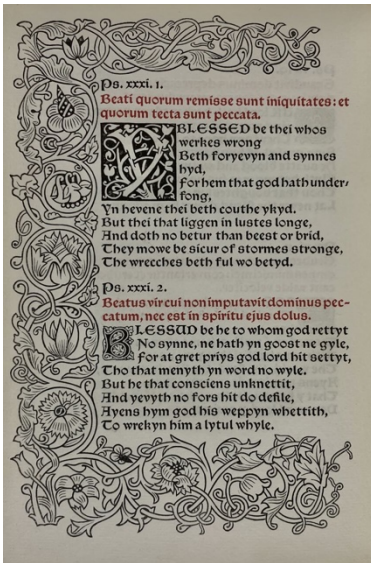 Ps. xxxi. 1.
Beati quorum remisse sunt iniquitates: et
quorum tecta sunt peccata.
YBLESSED be thei whos
werkes wrong
Beth foryevyn and synnes
hyd,
For hem that god hath under-
fong,
Yn hevene thei beth couthe ykyd.
But thei that liggen in lustes longe,
And doth no betur than beest or brid,
They mowe be sicur of stormes stronge,
The wrecches beth ful wo betyd.
Ps. xxxi. 2.
Beatus vir cui non imputavit dominus pec-
catum, nec est in spiritu ejus dolus.
BLESSUD be he to whom god rettyt
No synne, ne hath yn goost ne gyle,
For at gret priys god lord hit settyt,
Tho that menyth yn word no wyle.
But he that consciens unknettit,
And yevyth no fors hit do defile,
Ayens hym god his weppyn whettith,
To wrekyn him a lytul whyle.